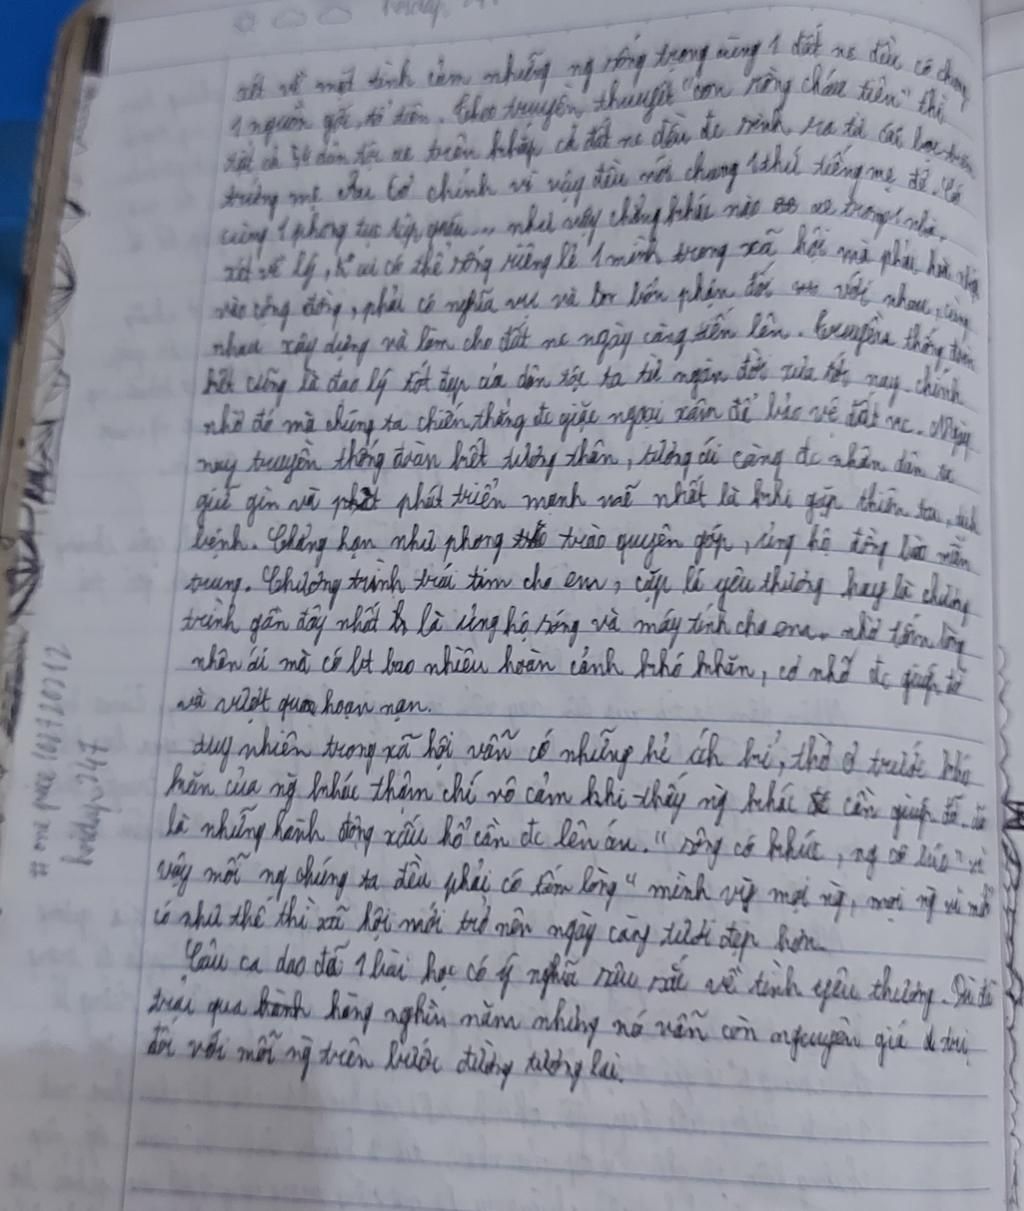 xét về mặt tình cảm những ng sống trong cùng 1 đất nc đều có chung
1 nguồn gốc, tổ tiên. Theo truyền thuyết "con rồng cháu tiên" thì
tất cả 54 dân tộc ae trên khắp cả đất nc đều đc sinh ra từ cái bọc trăm
trứng mẹ Âu Cơ chính vì vậy đều nói chung 1 thứ tiếng mẹ đẻ. Có
cùng 1 phong tục tập quán... như vậy chẳng khác nào ae trong 1 nhà.
xét về lý, k ai có thể sống riêng lẻ 1 mình trong xã hội mà phải hoà nhập
vào cộng đồng, phải có nghĩa vụ và bổn phận đối với nhau, cùng
nhau xây dựng và làm cho đất nc ngày càng tiến lên. Truyền thống đoàn
kết cũng là đạo lý tốt đẹp của dân tộc ta từ ngàn đời xưa tới nay chính
nhờ đó mà chúng ta chiến thắng đc giặc ngoại xâm để bảo vệ đất nc. Ngày
nay truyền thống đoàn kết tương thân, tương ái càng đc nhân dân ta
giữ gìn và phát triển mạnh mẽ nhất là khi gặp thiên tai, dịch
bệnh. Chẳng hạn như phong trào quyên góp, ủng hộ đồng bào miền
trung. Chương trình trái tim cho em, cặp lá yêu thương hay là chương
trình gần đây nhất là ủng hộ sóng và máy tính cho em. nhờ tấm lòng
nhân ái mà có bao nhiêu hoàn cảnh khó khăn, cơ nhỡ đc giúp đỡ
và vượt qua hoạn nạn.
tuy nhiên trong xã hội vẫn có những kẻ ích kỉ, thờ ơ trước khó
khăn của ng khác thậm chí vô cảm khi thấy ng khác cần giúp đỡ. đó
là những hành động xấu hổ cần đc lên án. "sông có khúc, ng có lúc" vì
vậy mỗi ng chúng ta đều phải có tấm lòng "mình vì mọi ng, mọi ng vì mình
có như thế thì xã hội mới trở nên ngày càng tươi đẹp hơn.
Câu ca dao đã 1 bài học có ý nghĩa sâu sắc về tình yêu thương. Dù đã
trải qua hàng nghìn năm nhưng nó vẫn còn nguyên giá trị
đối với mỗi ng trên bước đường tương lai.
# one piece 1087 20212
hoidap247